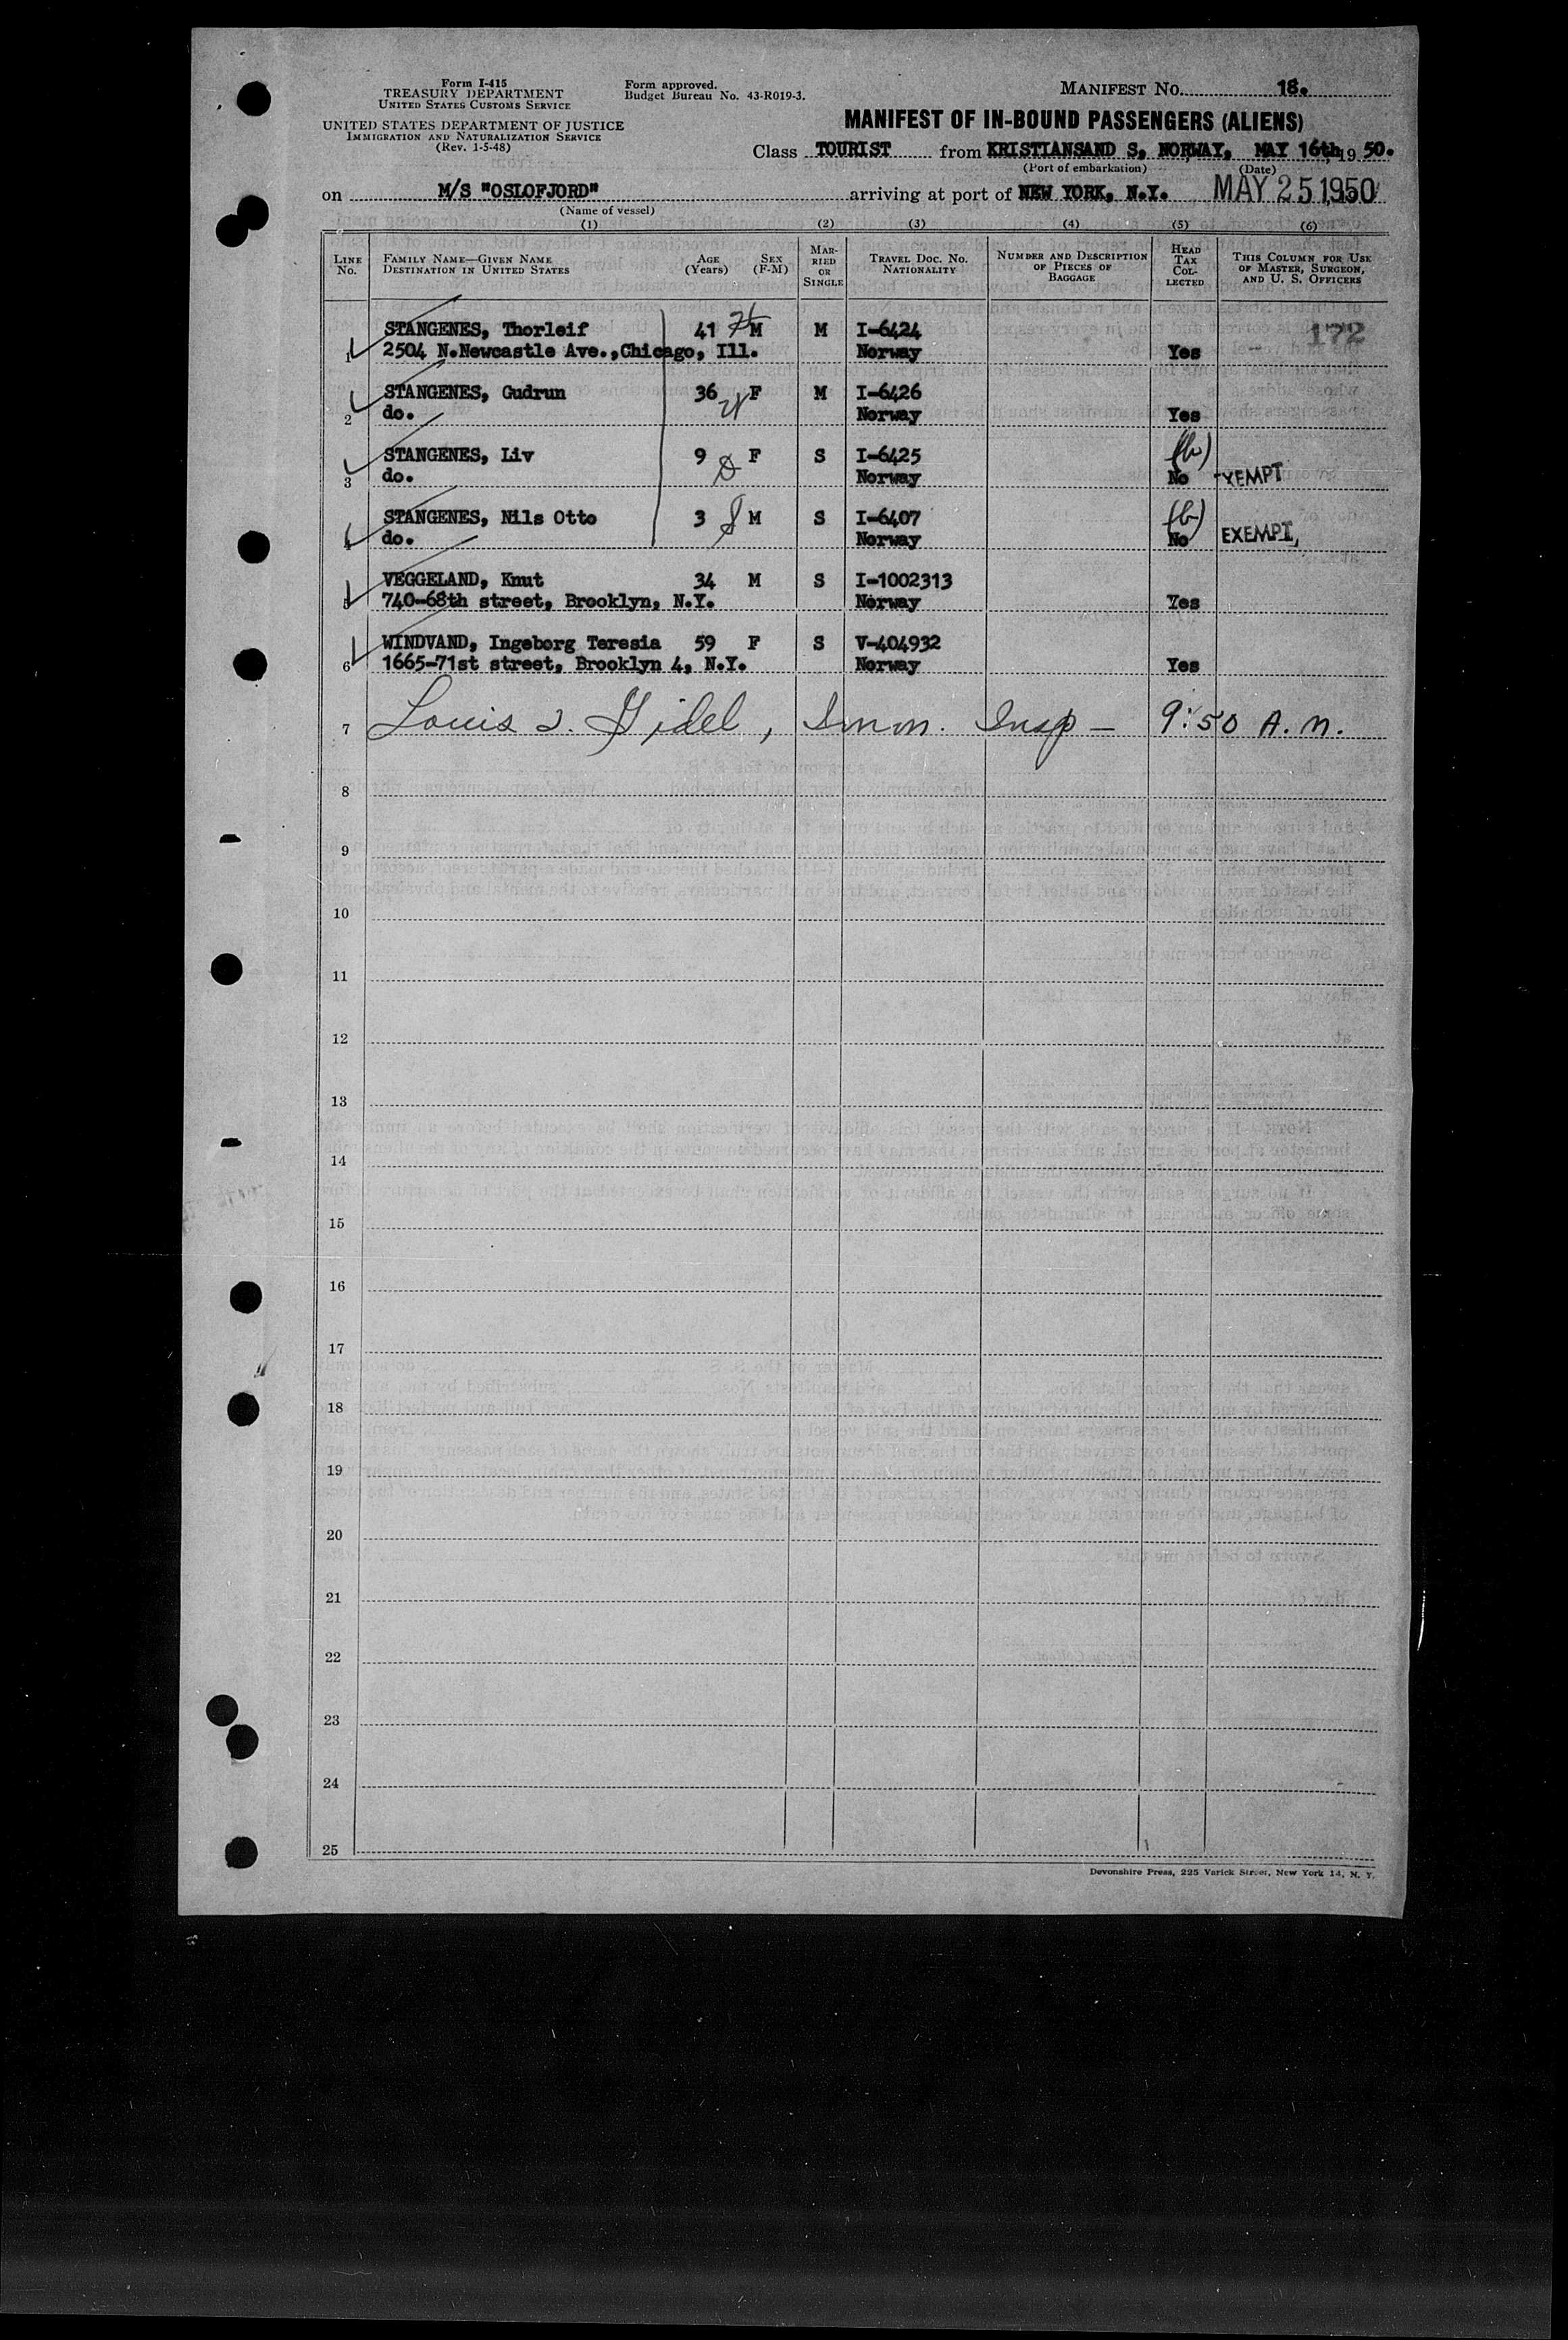 Form I-415
TREASURY DEPARTMENT
UNITED STATES CUSTOMS SERVICE
UNITED STATES DEPARTMENT OF JUSTICE
IMMIGRATION AND NATURALIZATION SERVICE
(Rev. 1-5-48)
Form approved.
Budget Bureau No. 43-R019-3.
MANIFEST NO. 18.
MANIFEST OF IN-BOUND PASSENGERS (ALIENS)
Class TOURIST from KRISTIANSAND S, NORWAY, MAY 16th, 19 50.
(Port of embarkation) (Date)
on M/S "OSLOFJORD" arriving at port of NEW YORK, N.Y. MAY 25 1950
(Name of vessel)
(1) (2) (3) (4) (5) (6)
LINE NO.
FAMILY NAME—GIVEN NAME
DESTINATION IN UNITED STATES
AGE (Years)
SEX (F-M)
MARRIED OR SINGLE
TRAVEL DOC. NO.
NATIONALITY
NUMBER AND DESCRIPTION OF PIECES OF BAGGAGE
HEAD TAX COLLECTED
THIS COLUMN FOR USE OF MASTER, SURGEON, AND U. S. OFFICERS
STANGENES, Thorleif 41 M M I-6424 172
1 2504 N.Newcastle Ave.,Chicago, Ill. Norway Yes
STANGENES, Gudrun 36 F M I-6426
2 do. Norway Yes
STANGENES, Liv 9 F S I-6425 (b)
3 do. Norway No EXEMPT
STANGENES, Nils Otto 3 M S I-6407 (b)
4 do. Norway No EXEMPT,
VEGGELAND, Knut 34 M S I-1002313
5 740-68th street, Brooklyn, N.Y. Norway Yes
WINDVAND, Ingeborg Teresia 59 F S V-404932
6 1665-71st street, Brooklyn 4, N.Y. Norway Yes
7 Louis I. Gidel, Imm. Insp — 9:50 A.M.
8
9
10
11
12
13
14
15
16
17
18
19
20
21
22
23
24
25
Devonshire Press, 225 Varick Street, New York 14, N. Y.